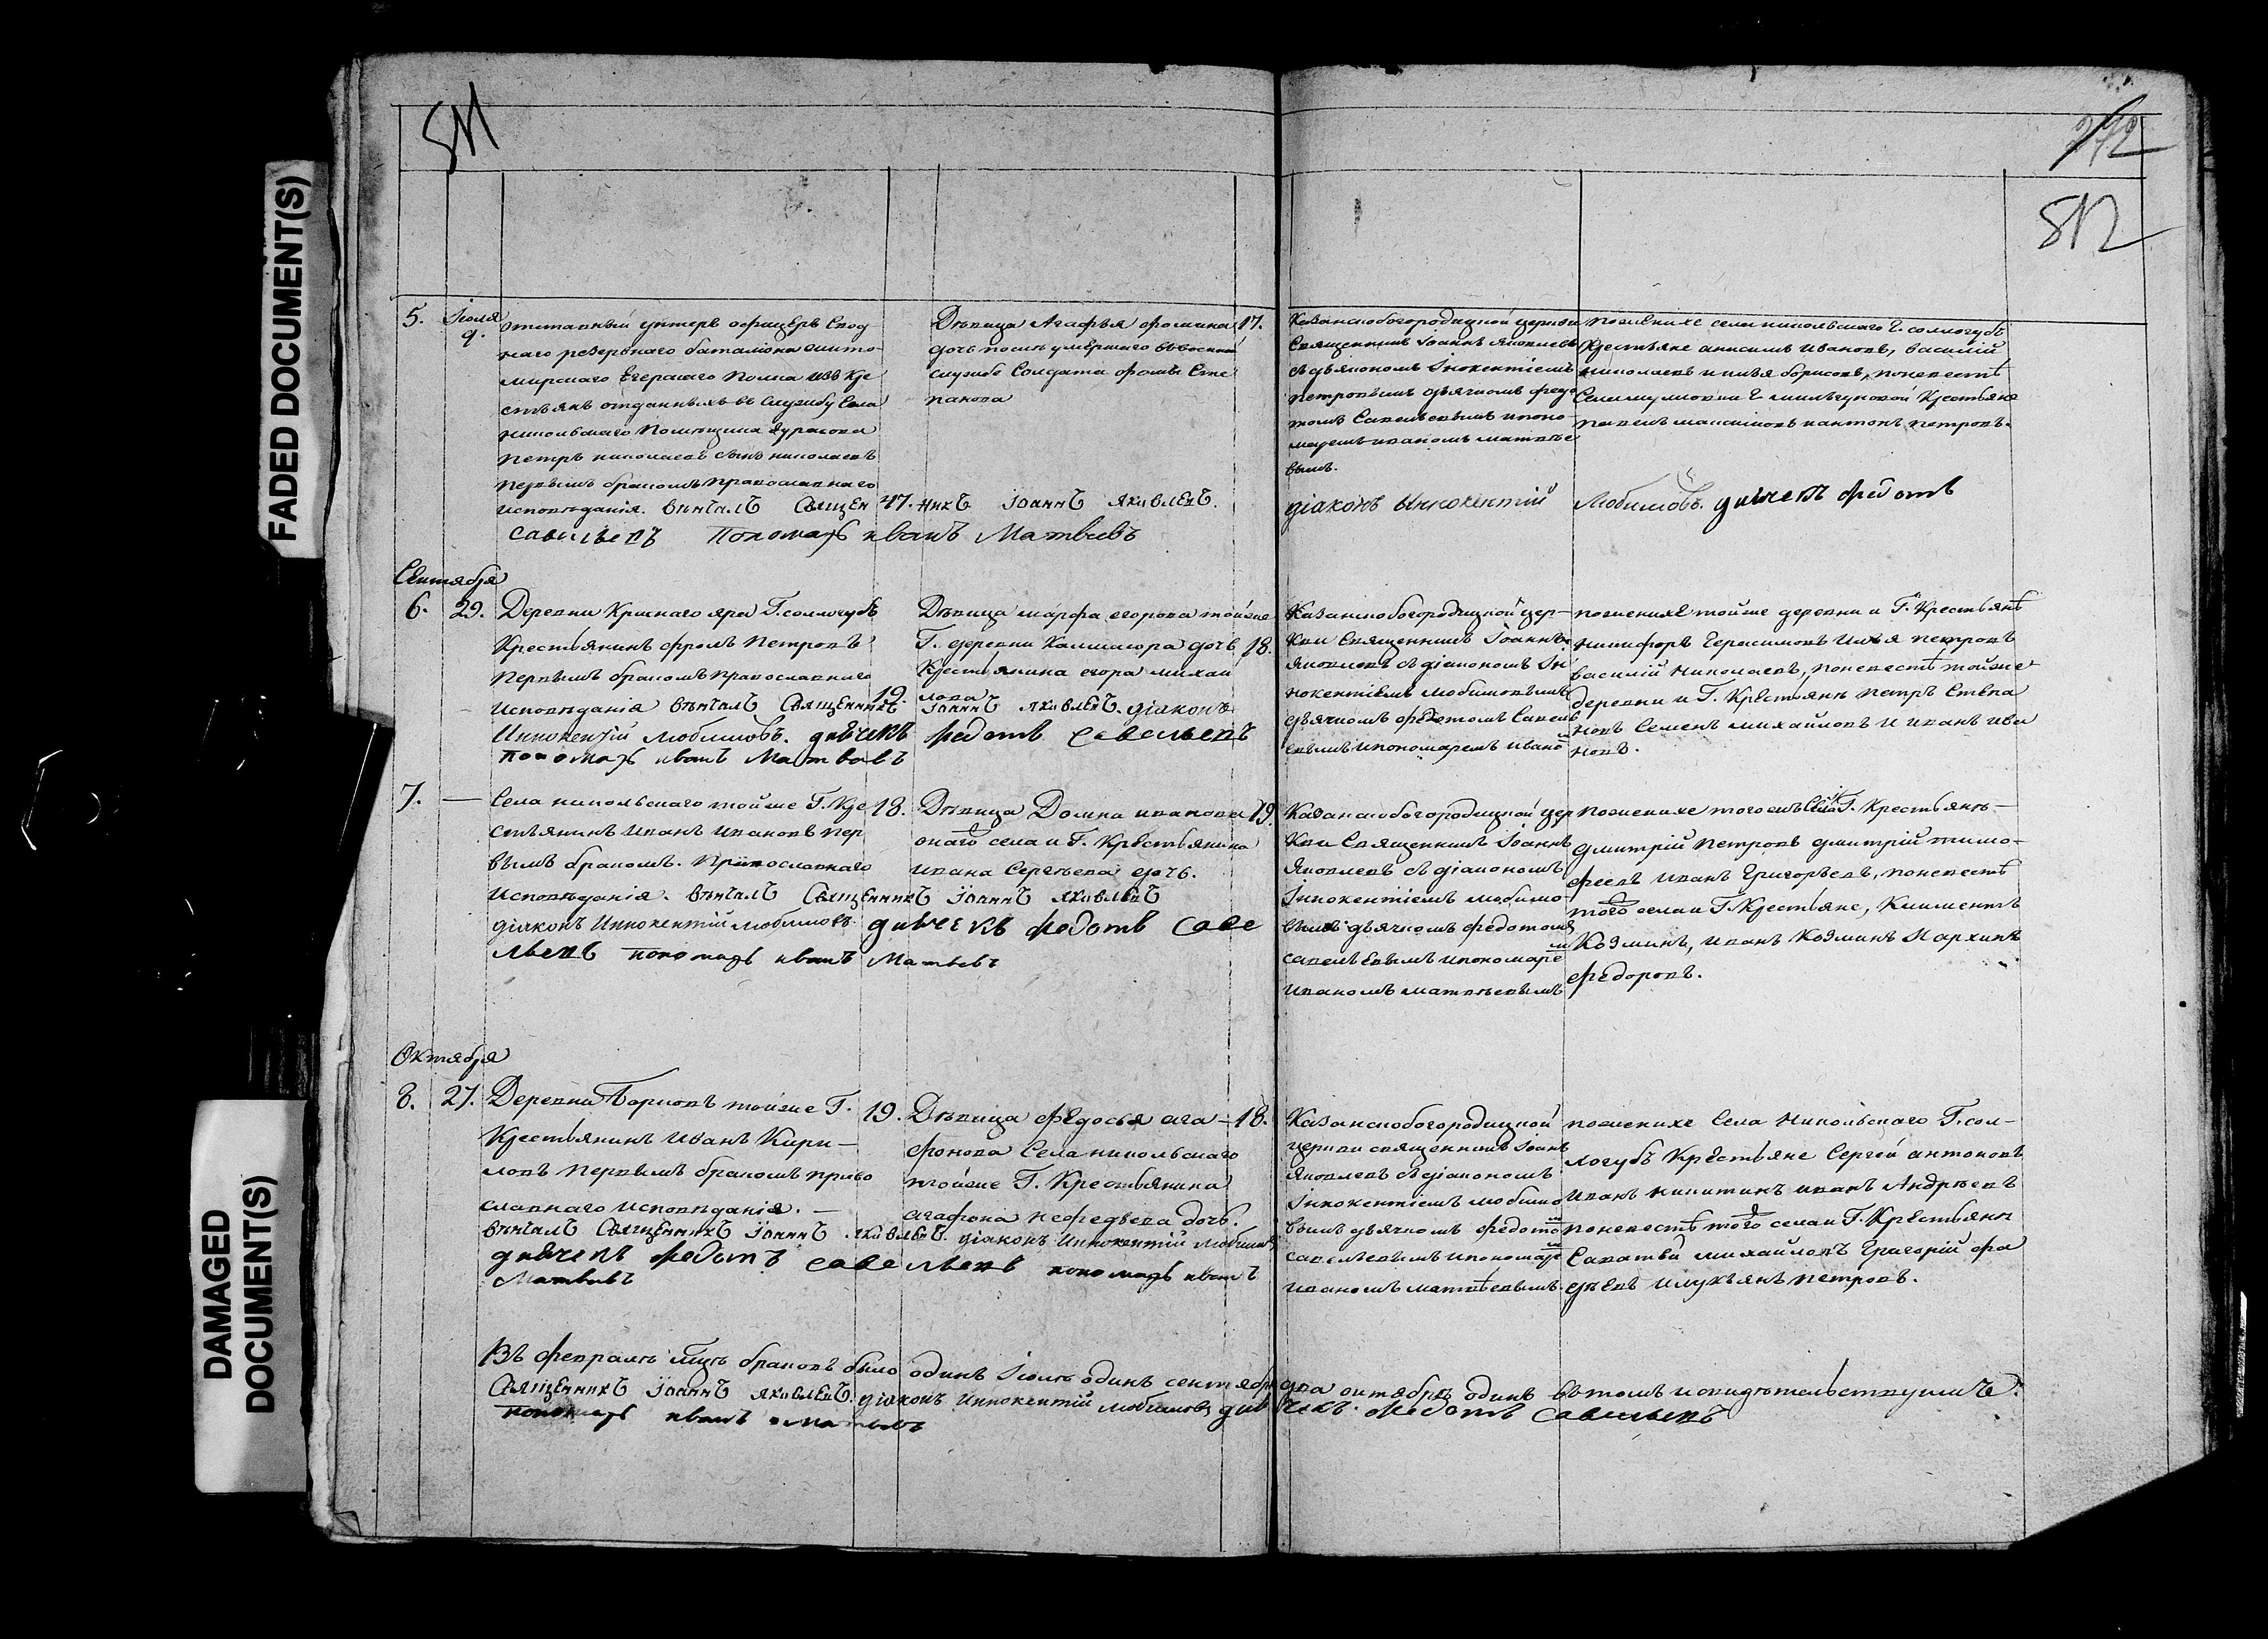 FADED DOCUMENT(S)
DAMAGED
DOCUMENT(S)
511
272
512
5. Іюля 9.
отставный унтеръ офицеръ свод
наго резервнаго баталіона
мирскаго Егерскаго полка изъ кре
стьянъ отданныхъ въ службу Села
никольскаго помѣщика Дурасова
петръ николаевъ сынъ николаевъ
первымъ бракомъ православнаго
исповѣданія. вѣнчалъ Священ 47. никъ Іоаннъ яковлевъ.
савельевъ пономарь иванъ Матвеевъ
Дѣвица Агафья фомина 17.
дочь послѣ умершаго въ военной
службе Солдата фомы Сте
панова
Казанскобогородицкой церкви
Священникъ Іоаннъ яковлевъ
съ діакономъ Інокентіемъ
петровымъ дьячкомъ федо
томъ Савельевымъ и поно-
маремъ иваномъ матвѣе
вымъ.
діаконъ Иннокентій Любимовъ. дьячекъ федотъ
поженихе села никольскаго Г. соллогубъ
Крестьяне анисимъ ивановъ, василій
николаевъ и илья борисовъ, поневестѣ
Крестьяне
павелъ максимовъ и антонъ петровъ.
Сентября
6. 29. Деревни Краснаго яра Г. соллогубъ
Крестьянинъ фролъ Петровъ
первымъ бракомъ православнаго
исповѣданія вѣнчалъ Священникъ 19. Іоаннъ яковлевъ. діаконъ
Иннокентій любимовъ. дьячекъ федотъ савельевъ
пономарь иванъ Матвевъ
Дѣвица марфа егорова тойже
Г. деревни дочь 18.
Крестьянина егора михаи
лова
Казанскобогородицкой цер-
кви Священникъ Іоаннъ
яковлевъ съ діакономъ Ін
нокентіемъ любимовымъ
дьячкомъ федотомъ Савель
евымъ и пономаремъ ивано
поженихе тойже деревни и Г. Крестьянѣ
никифоръ Герасимовъ илья петровъ
василій николаевъ, поневестѣ тойже
деревни и Г. Крестьянѣ петръ степа
новъ семенъ михайловъ и иванъ ива
новъ.
7. — Села никольскаго тойже Г. Кре 18.
стьянинъ иванъ ивановъ пер
вымъ бракомъ. православнаго
исповѣданія. вѣнчалъ Священникъ Іоаннъ яковлевъ
діаконъ Иннокентій любимовъ. дьячекъ федотъ саве
льевъ пономарь иванъ Матвевъ
Дѣвица Домна иванова 19.
онаго села и Г. Крестьянина
ивана Сергѣева дочь.
Казанскобогородицкой цер
кви Священникъ Іоаннъ
яковлевъ съ діакономъ
Іннокентіемъ любимо
вымъ дьячкомъ федотомъ
савельевымъ и пономаре
иваномъ матвѣевымъ
поженихе тогожъ села Г. Крестьянѣ—
дмитрій петровъ дмитрій тимо-
феевъ иванъ Григорьевъ, поневестѣ
того села и Г. Крестьяне, Климентъ
Козминъ, иванъ Козминъ Мархинъ
федоровъ.
Октября
8. 27. Деревни Борковъ тойже Г. 19.
Крестьянинъ иванъ Кири—
ловъ первымъ бракомъ право
славнаго исповѣданія. —
вѣнчалъ Священникъ Іоаннъ яковлевъ. діаконъ Иннокентій любимовъ
дьячекъ федотъ савельевъ пономарь иванъ
Матвевъ
Дѣвица федосья ага—18.
фонова Села никольскаго
тойже Г. Крестьянина
агафона нефедьева дочь.
Казанскобогородицкой
церкви священникъ Іоанъ
яковлевъ съ діакономъ
Іннокентіемъ любимо
вымъ дьячкомъ федото
савельевымъ и пономаре
иваномъ матвѣевымъ.
поженихе Села никольскаго Г. сол-
логубъ Крестьяне Сергей антоновъ
иванъ никитинъ иванъ Андреевъ
поневестѣ того села и Г. Крестьяни
Саватей михайловъ Григорій фа
дѣевъ и лукьянъ петровъ.
Въ февралѣ мцѣ браковъ было одинъ Іюлѣ одинъ сентябрѣ два октябрѣ одинъ въ томъ и свидѣтельствуемъ
Священникъ Іоаннъ яковлевъ. діаконъ Иннокентій любимовъ дьячекъ. федотъ савельевъ
пономарь иванъ Матвевъ